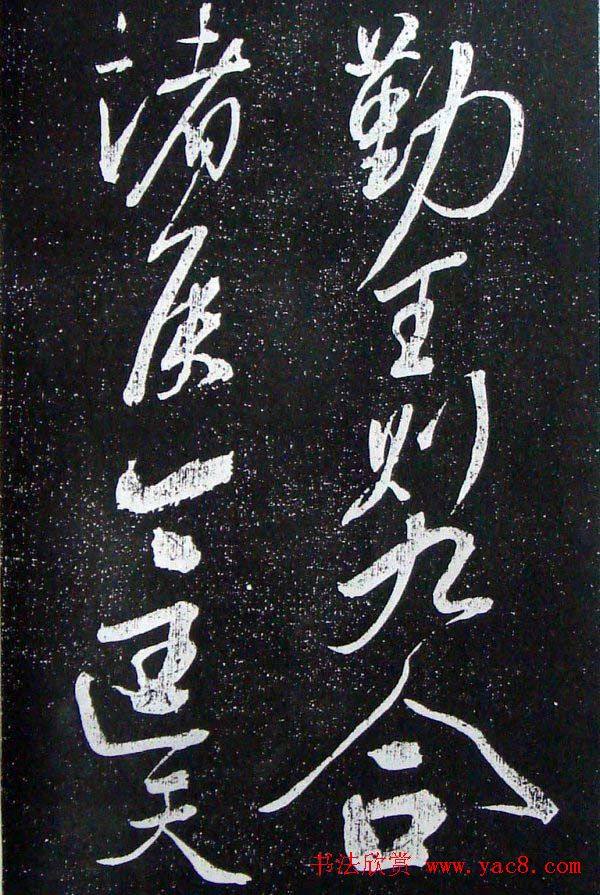 勤王則九合
諸侯一匡天
书法欣赏 www.yac8.com